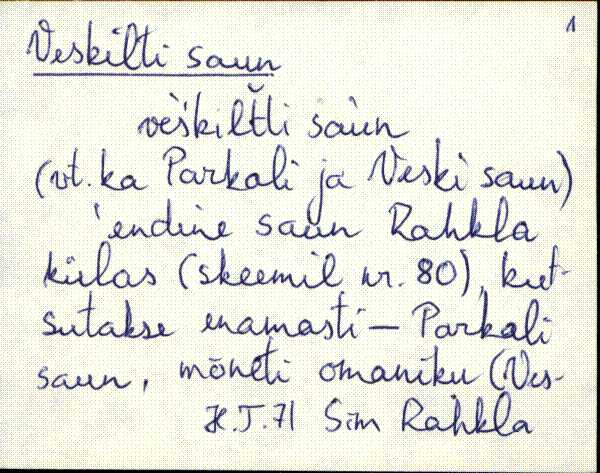 1
Veskilti saun
vèškilt̆ti saùn
(vt. ka Parkali ja Veski saun)
'endine saun Rahkla
külas (skeemil nr. 80), kut-
sutakse enamasti – Parkali
saun, mõneti omaniku (Ves-
H.J.71 Sim Rahkla